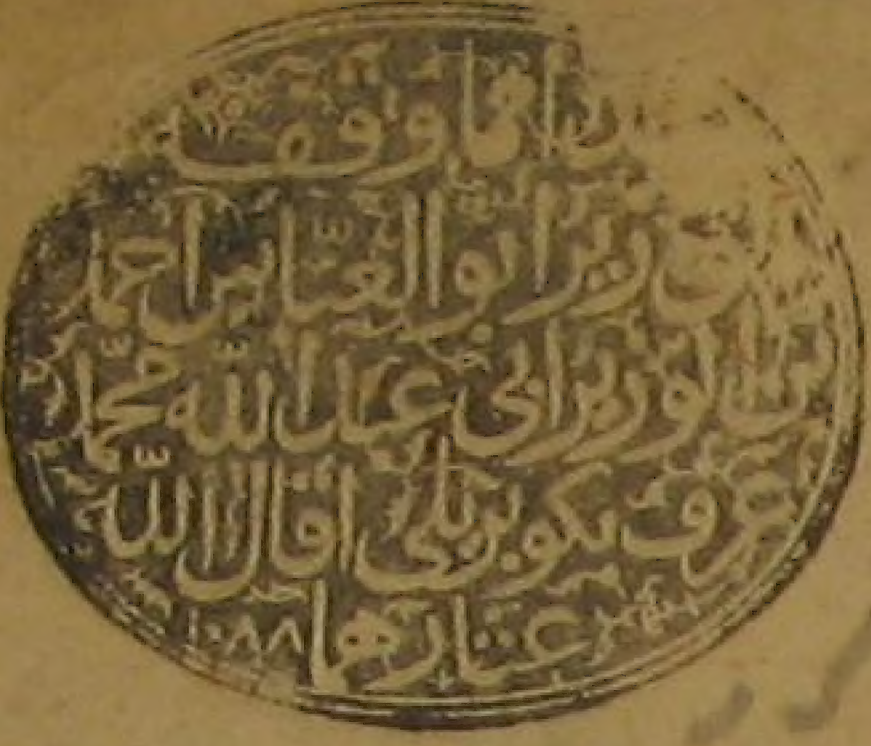 هذا ما وقفه
الوزير ابو العباس احمد
بن الوزير ابي عبد الله محمد
عرف بكوبريلي اقال الله
عثارهما ١٠٨٨